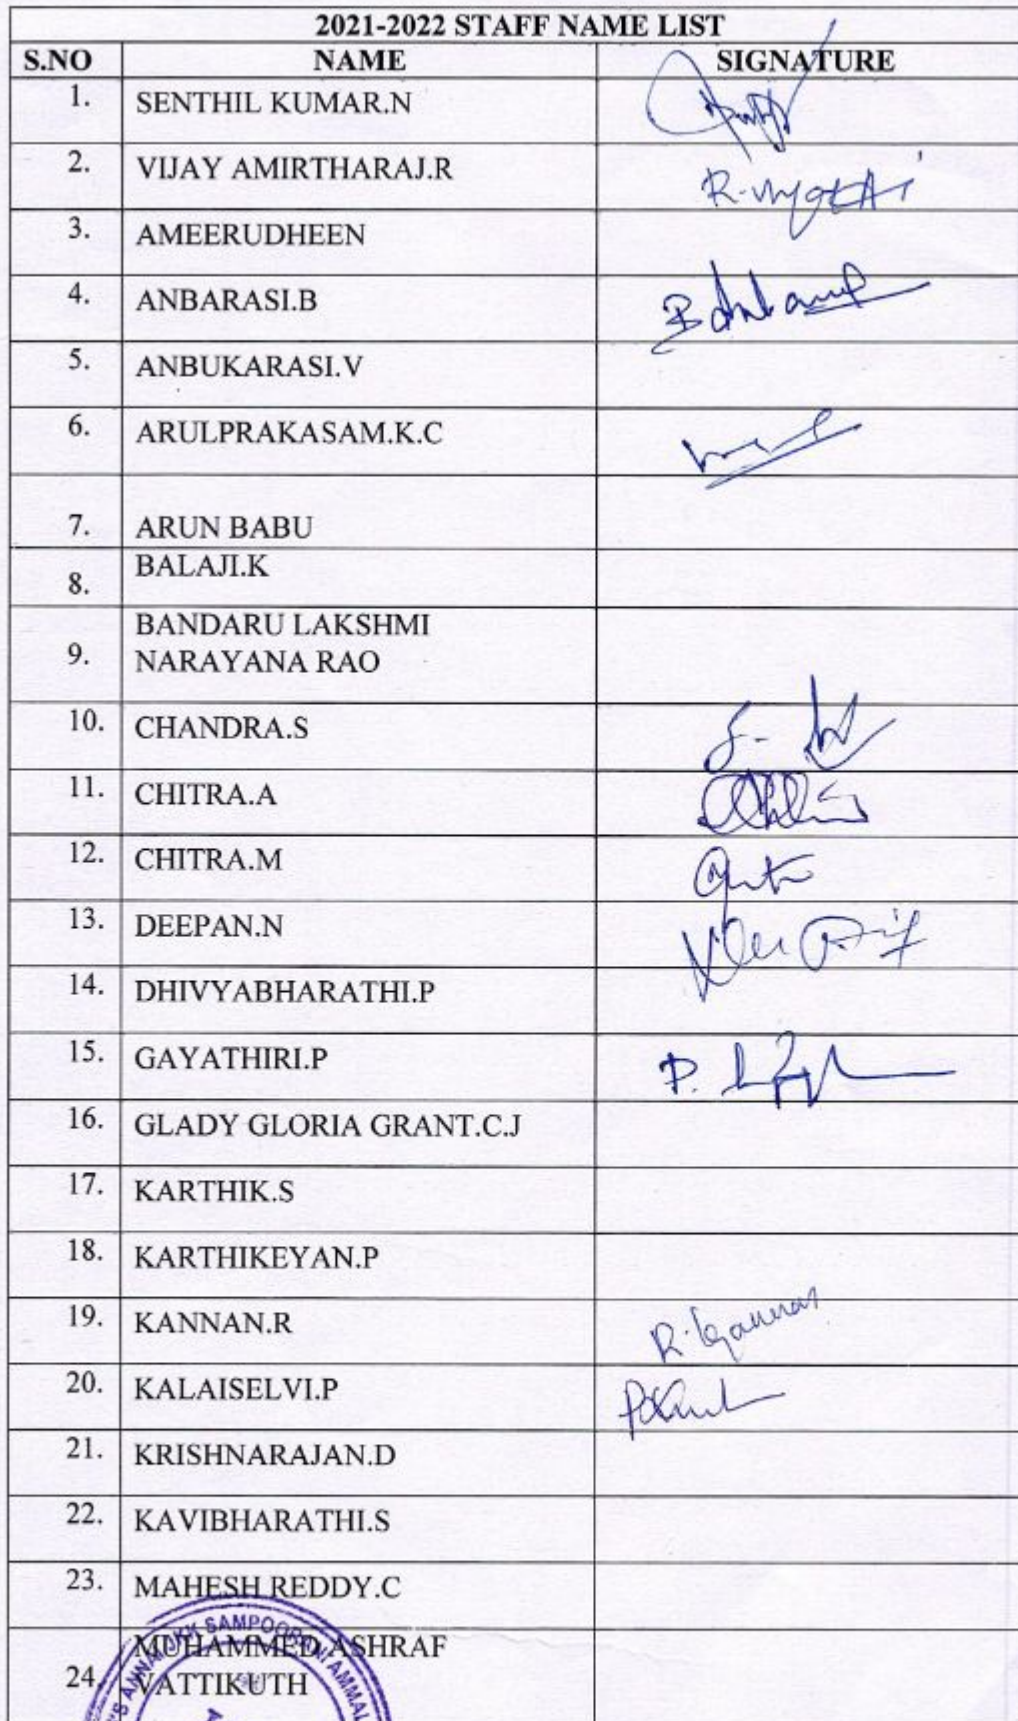 2021-2022 STAFF NAME LIST
S.NO NAME SIGNATURE
1. SENTHIL KUMAR.N
2. VIJAY AMIRTHARAJ.R
3. AMEERUDHEEN
4. ANBARASI.B
5. ANBUKARASI.V
6. ARULPRAKASAM.K.C
7. ARUN BABU
8. BALAJI.K
9. BANDARU LAKSHMI
NARAYANA RAO
10. CHANDRA.S
11. CHITRA.A
12. CHITRA.M
13. DEEPAN.N
14. DHIVYABHARATHI.P
15. GAYATHIRI.P
16. GLADY GLORIA GRANT.C.J
17. KARTHIK.S
18. KARTHIKEYAN.P
19. KANNAN.R R. Kannan
20. KALAISELVI.P
21. KRISHNARAJAN.D
22. KAVIBHARATHI.S
23. MAHESH REDDY.C
24. MUHAMMED ASHRAF
VATTIKUTH
ANNAI JKK SAMPOORANI AMMAL